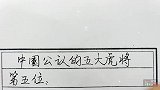 中国公认的五大虎将
第五位：